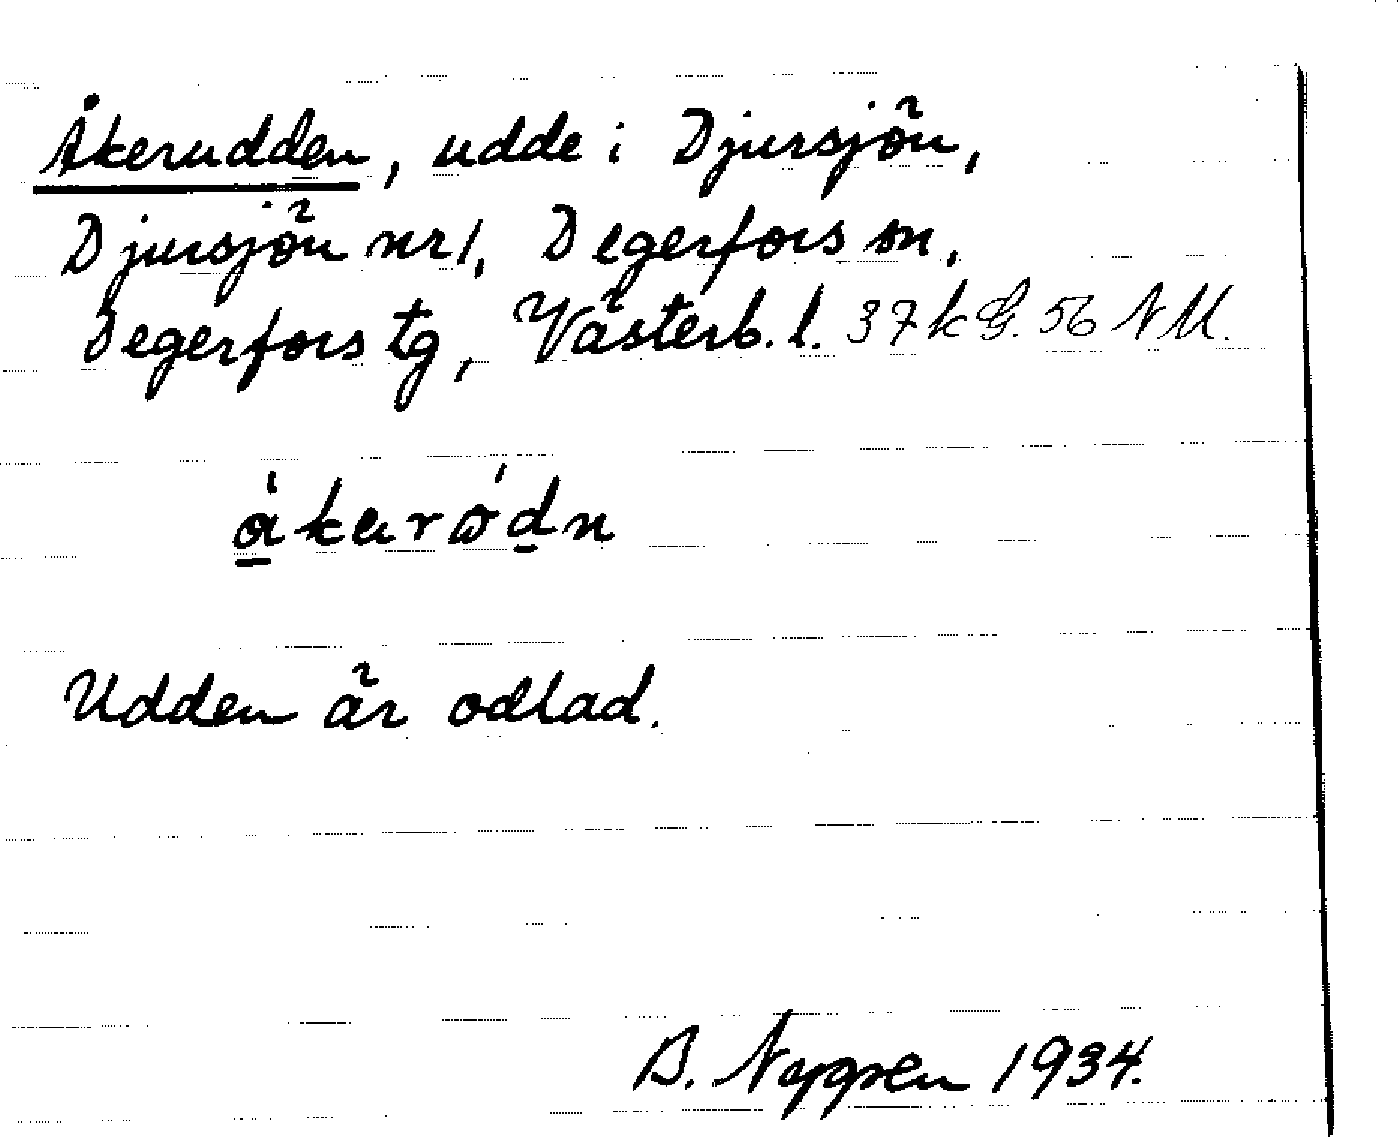 Åkerudden, udde i Djursjön,
Djursjön nr 1, Degerfors sn,
Degerfors tg, Västerb. l. 37 k G. 56 N M.
Udden är odlad.
B. Nygren 1934.